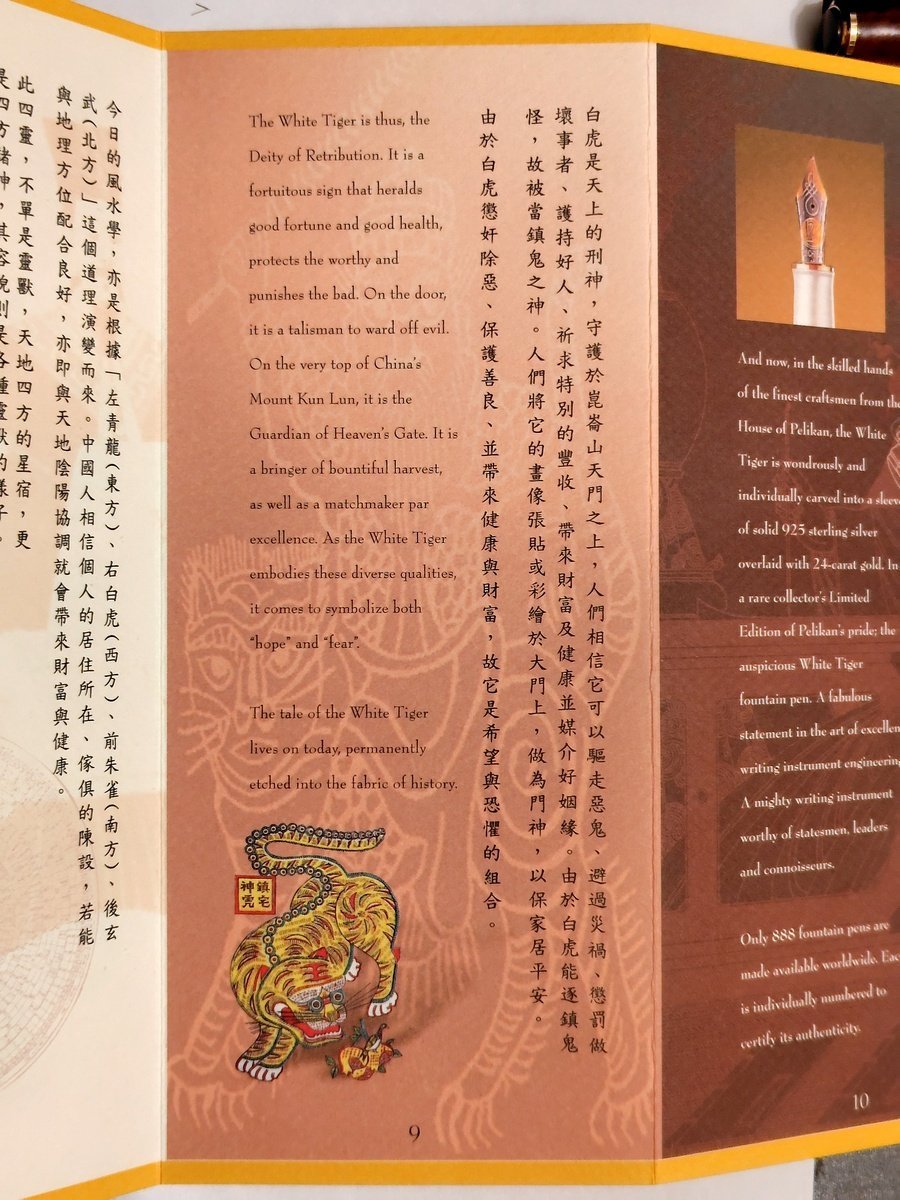 今日的風水學，亦是根據「左青龍(東方)、右白虎(西方)、前朱雀(南方)、後玄
武(北方)」這個道理演變而來。中國人相信個人的居住所在、傢俱的陳設，若能
與地理方位配合良好，亦即與天地陰陽協調就會帶來財富與健康。
此四靈，不單是靈獸，天地四方的星宿，更
是四方諸神，其容貌則是各種靈獸的樣子。
The White Tiger is thus, the
Deity of Retribution. It is a
fortuitous sign that heralds
good fortune and good health,
protects the worthy and
punishes the bad. On the door,
it is a talisman to ward off evil.
On the very top of China's
Mount Kun Lun, it is the
Guardian of Heaven's Gate. It is
a bringer of bountiful harvest,
as well as a matchmaker par
excellence. As the White Tiger
embodies these diverse qualities,
it comes to symbolize both
"hope" and "fear".
The tale of the White Tiger
lives on today, permanently
etched into the fabric of history.
白虎是天上的刑神，守護於崑崙山天門之上，人們相信它可以驅走惡鬼、避過災禍、懲罰做
壞事者、護持好人、祈求特別的豐收、帶來財富及健康並媒介好姻緣。由於白虎能逐鎮鬼
怪，故被當鎮鬼之神。人們將它的畫像張貼或彩繪於大門上，做為門神，以保家居平安。
由於白虎懲奸除惡、保護善良、並帶來健康與財富，故它是希望與恐懼的組合。
鎮宅
神
9
And now, in the skilled hands
of the finest craftsmen from the
House of Pelikan, the White
Tiger is wondrously and
individually carved into a sleeve
of solid 925 sterling silver
overlaid with 24-carat gold. In
a rare collector's Limited
Edition of Pelikan's pride; the
auspicious White Tiger
fountain pen. A fabulous
statement in the art of excellen
writing instrument engineering
A mighty writing instrument
worthy of statesmen, leaders
and connoisseurs.
Only 888 fountain pens are
made available worldwide. Eac
is individually numbered to
certify its authenticity.
10